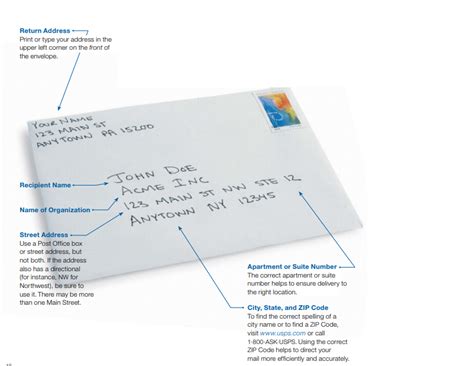 Return Address
Print or type your address in the
upper left corner on the front of
the envelope.
YOUR NAME
123 MAIN ST
ANYTOWN PA 15200
JOHN DOE
ACME INC
123 MAIN ST NW STE 12
ANYTOWN NY 12345
Recipient Name
Name of Organization
Street Address
Use a Post Office box
or street address, but
not both. If the address
also has a directional
(for instance, NW for
Northwest), be sure to
use it. There may be more
than one Main Street.
Apartment or Suite Number
The correct apartment or suite
number helps to ensure delivery to
the right location.
City, State, and ZIP Code
To find the correct spelling of a
city name or to find a ZIP Code,
visit www.usps.com or call
1-800-ASK-USPS. Using the correct
ZIP Code helps to direct your
mail more efficiently and accurately.